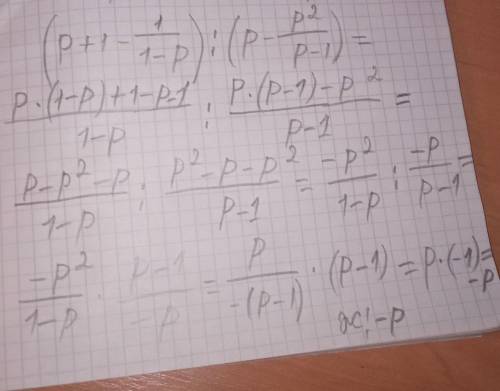 (p+1-\frac{1}{1-p}):(p-\frac{p^2}{p-1})=
\frac{p·(1-p)+1-p-1}{1-p}:\frac{p·(p-1)-p^2}{p-1}=
\frac{p-p^2-p}{1-p}:\frac{p^2-p-p^2}{p-1}=\frac{-p^2}{1-p}:\frac{-p}{p-1}=
\frac{-p^2}{1-p}·\frac{p-1}{-p}=\frac{p}{-(p-1)}·(p-1)=p·(-1)=-p